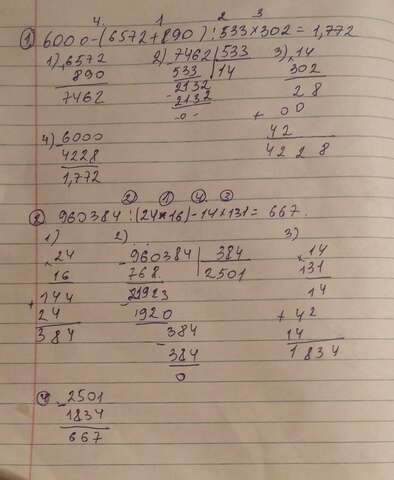 4. 1 2 3
① 6000-(6572+890):533×302=1,772
1) 6572 2) 7462 | 533 3) 14
890 533 | 14 302
7462 2132 28
- 2132 + 00
-0- 42
4) 6000 4228
4228
1,772
② ① ④ ③
② 960384:(24×16)-14×131= 667.
1) 2) 3)
×24 -960384 | 384 ×14
16 768 | 2501 131
+144 1923 14
24 1920 +42
384 384 14
- 384 1834
0
④ -2501
1834
667